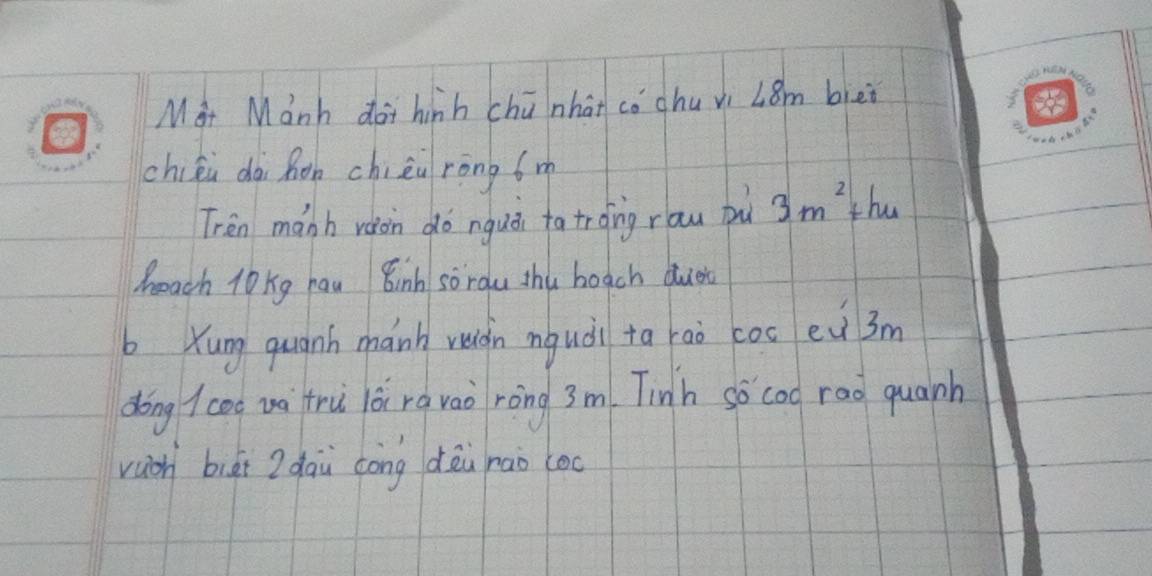 Một Mảnh đất hình chữ nhật có chu vi 48m biết
chiều dài hơn chiều rộng 6m
Trên mảnh vườn đó người ta trồng rau cứ 3m² thu
hoạch 10kg rau Tính số rau thu hoạch được
b Xung quanh mảnh vườn người ta rào cọc cứ 3m
đóng 1 cọc và trừ lối ra vào rộng 3m. Tính số cọc rào quanh
vườn biết 2 đầu cổng đều rào cọc